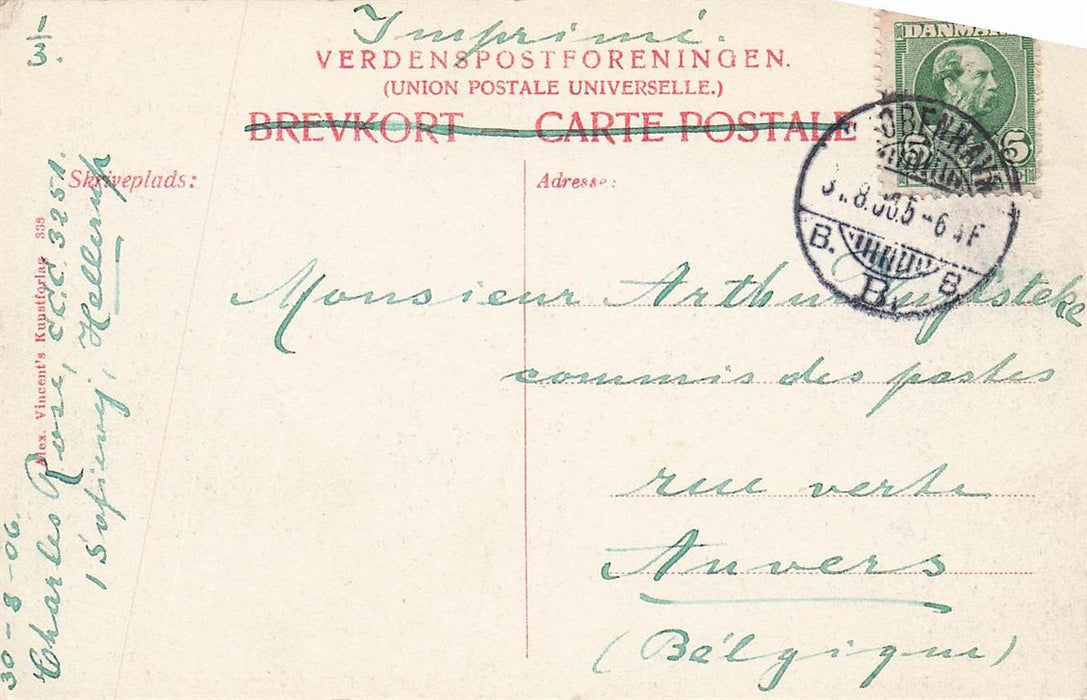 1/3.
Imprimé.
VERDENSPOSTFORENINGEN.
(UNION POSTALE UNIVERSELLE.)
BREVKORT CARTE POSTALE
Skriveplads:
Adresse:
DANMARK
5 5
KØBENHAVN
31.8.06 5-6 F
B. B. B.
Monsieur Arthur
commis des postes
rue verte
Anvers
(Bélgique)
Alex. Vincent's Kunstforlag 338
30-8-06.
Charles Rose, C.C.C. 3251.
1 Sofievej, Hellerup